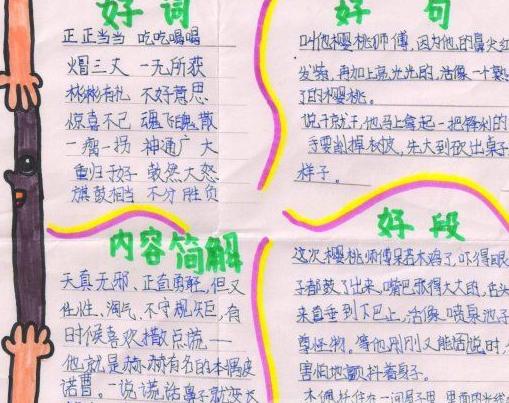 好词
正正当当 吃吃喝喝
火冒三丈 一无所获
彬彬有礼 不好意思
惊喜不已 魂飞魄散
一瘸一拐 神通广大
重归于好 勃然大怒
旗鼓相当 不分胜负
内容简解
天真无邪、正直勇敢,但又
任性、淘气、不守规矩,有
时候喜欢撒点谎——
他就是赫赫有名的木偶皮
诺曹。一说谎话鼻子就变长
好句
叫他樱桃师傅,因为他的鼻尖红
发紫,再加上亮光光的,活像一个
了的樱桃。
说干就干,他马上拿起一把锋利的
要削掉树皮,先大到砍出桌子
样子。
好段
这次,樱桃师傅呆若木鸡了,吓得眼
子都鼓了出来,嘴巴张得大大的,舌头
来直垂到下巴上,活像喷泉池子
等他刚刚又能活说时,
害怕地颤抖着身子。